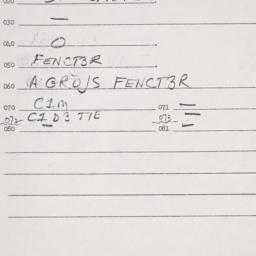 030 —
040 O
050 FENCT3R
060 AGROJS FENCT3R
070 C1M 071 —
072 C1D3 TTE 073 =
080 081 —